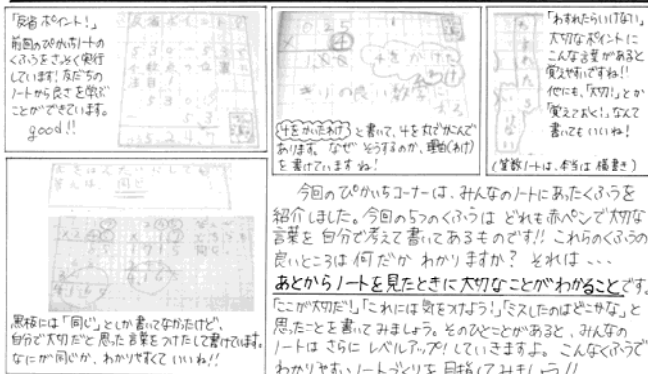 「反省ポイント!」
前回のぴかいちノートの
くふうをさっそく実行
しています!友だちの
ノートから良さを学ぶ
ことができています。
good!!
4をかけた
わけ
きりの良い数字に
する
「4をかいたわけ」と書いて、4を丸でかこんで
あります。なぜそうするのか、理由(わけ)
を書けていますね!
「わすれたらいけない」
大切なポイントに
こんな言葉があると
覚えやすいですね!!
他にも、「大切!」とか
「覚えておく!」なんて
書いてもいいね!
(算数ノートは、本当は横書き)
答えは、同じ
黒板には「同じ」としか書いてなかったけど、
自分で大切だと思った言葉をつけたして書けています。
なにが同じか、わかりやすくていいね!!
今回のぴかいちコーナーは、みんなのノートにあったくふうを
紹介しました。今回の5つのくふうはどれも赤ペンで大切な
言葉を自分で考えて書いてあるものです!!これらのくふうの
良いところは何だかわかりますか?それは、、、
あとからノートを見たときに大切なことがわかることです。
「ここが大切だ!」「これには気をつけよう!」「ミスしたのはどこかな」と
思ったことを書いてみましょう。そのひとことがあると、みんなの
ノートはさらにレベルアップ!していきますよ。こんなくふうで
わかりやすいノートづくりを目指してみましょう!!